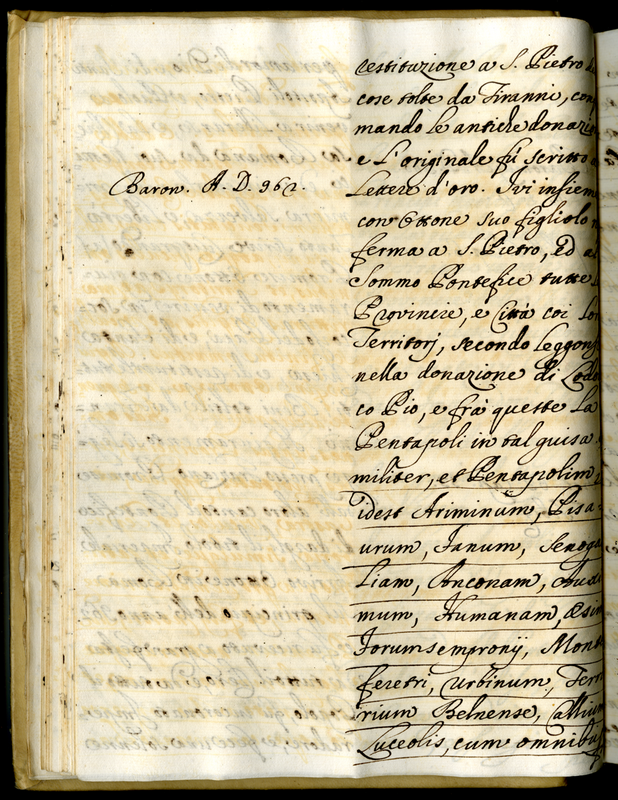 restituzione a S. Pietro de
cose tolte da Tiranni, con
mando le antiche donazio
e L'originale fù scritto a
Baron. A. D. 962.
Lettere d'oro. Ivi insiem
con Ottone suo figliolo
ferma a S. Pietro, ed al
Sommo Pontefice tutte
Provincie, e Città coi Lor
Territorj, secondo leggons
nella donazione di Lodo
co Pio, e frà queste La
Pentapoli in tal guisa
militer, et Pentapolim
idest Ariminum, Pisa-
urum, Fanum, Senoga
Liam, Anconam, Auxi
mum, Humanam, Æsim
Forumsempronij, Mont
feretri, Urbinum, Terri
rium Belnense, Callium
Luceolis, cum omnibus